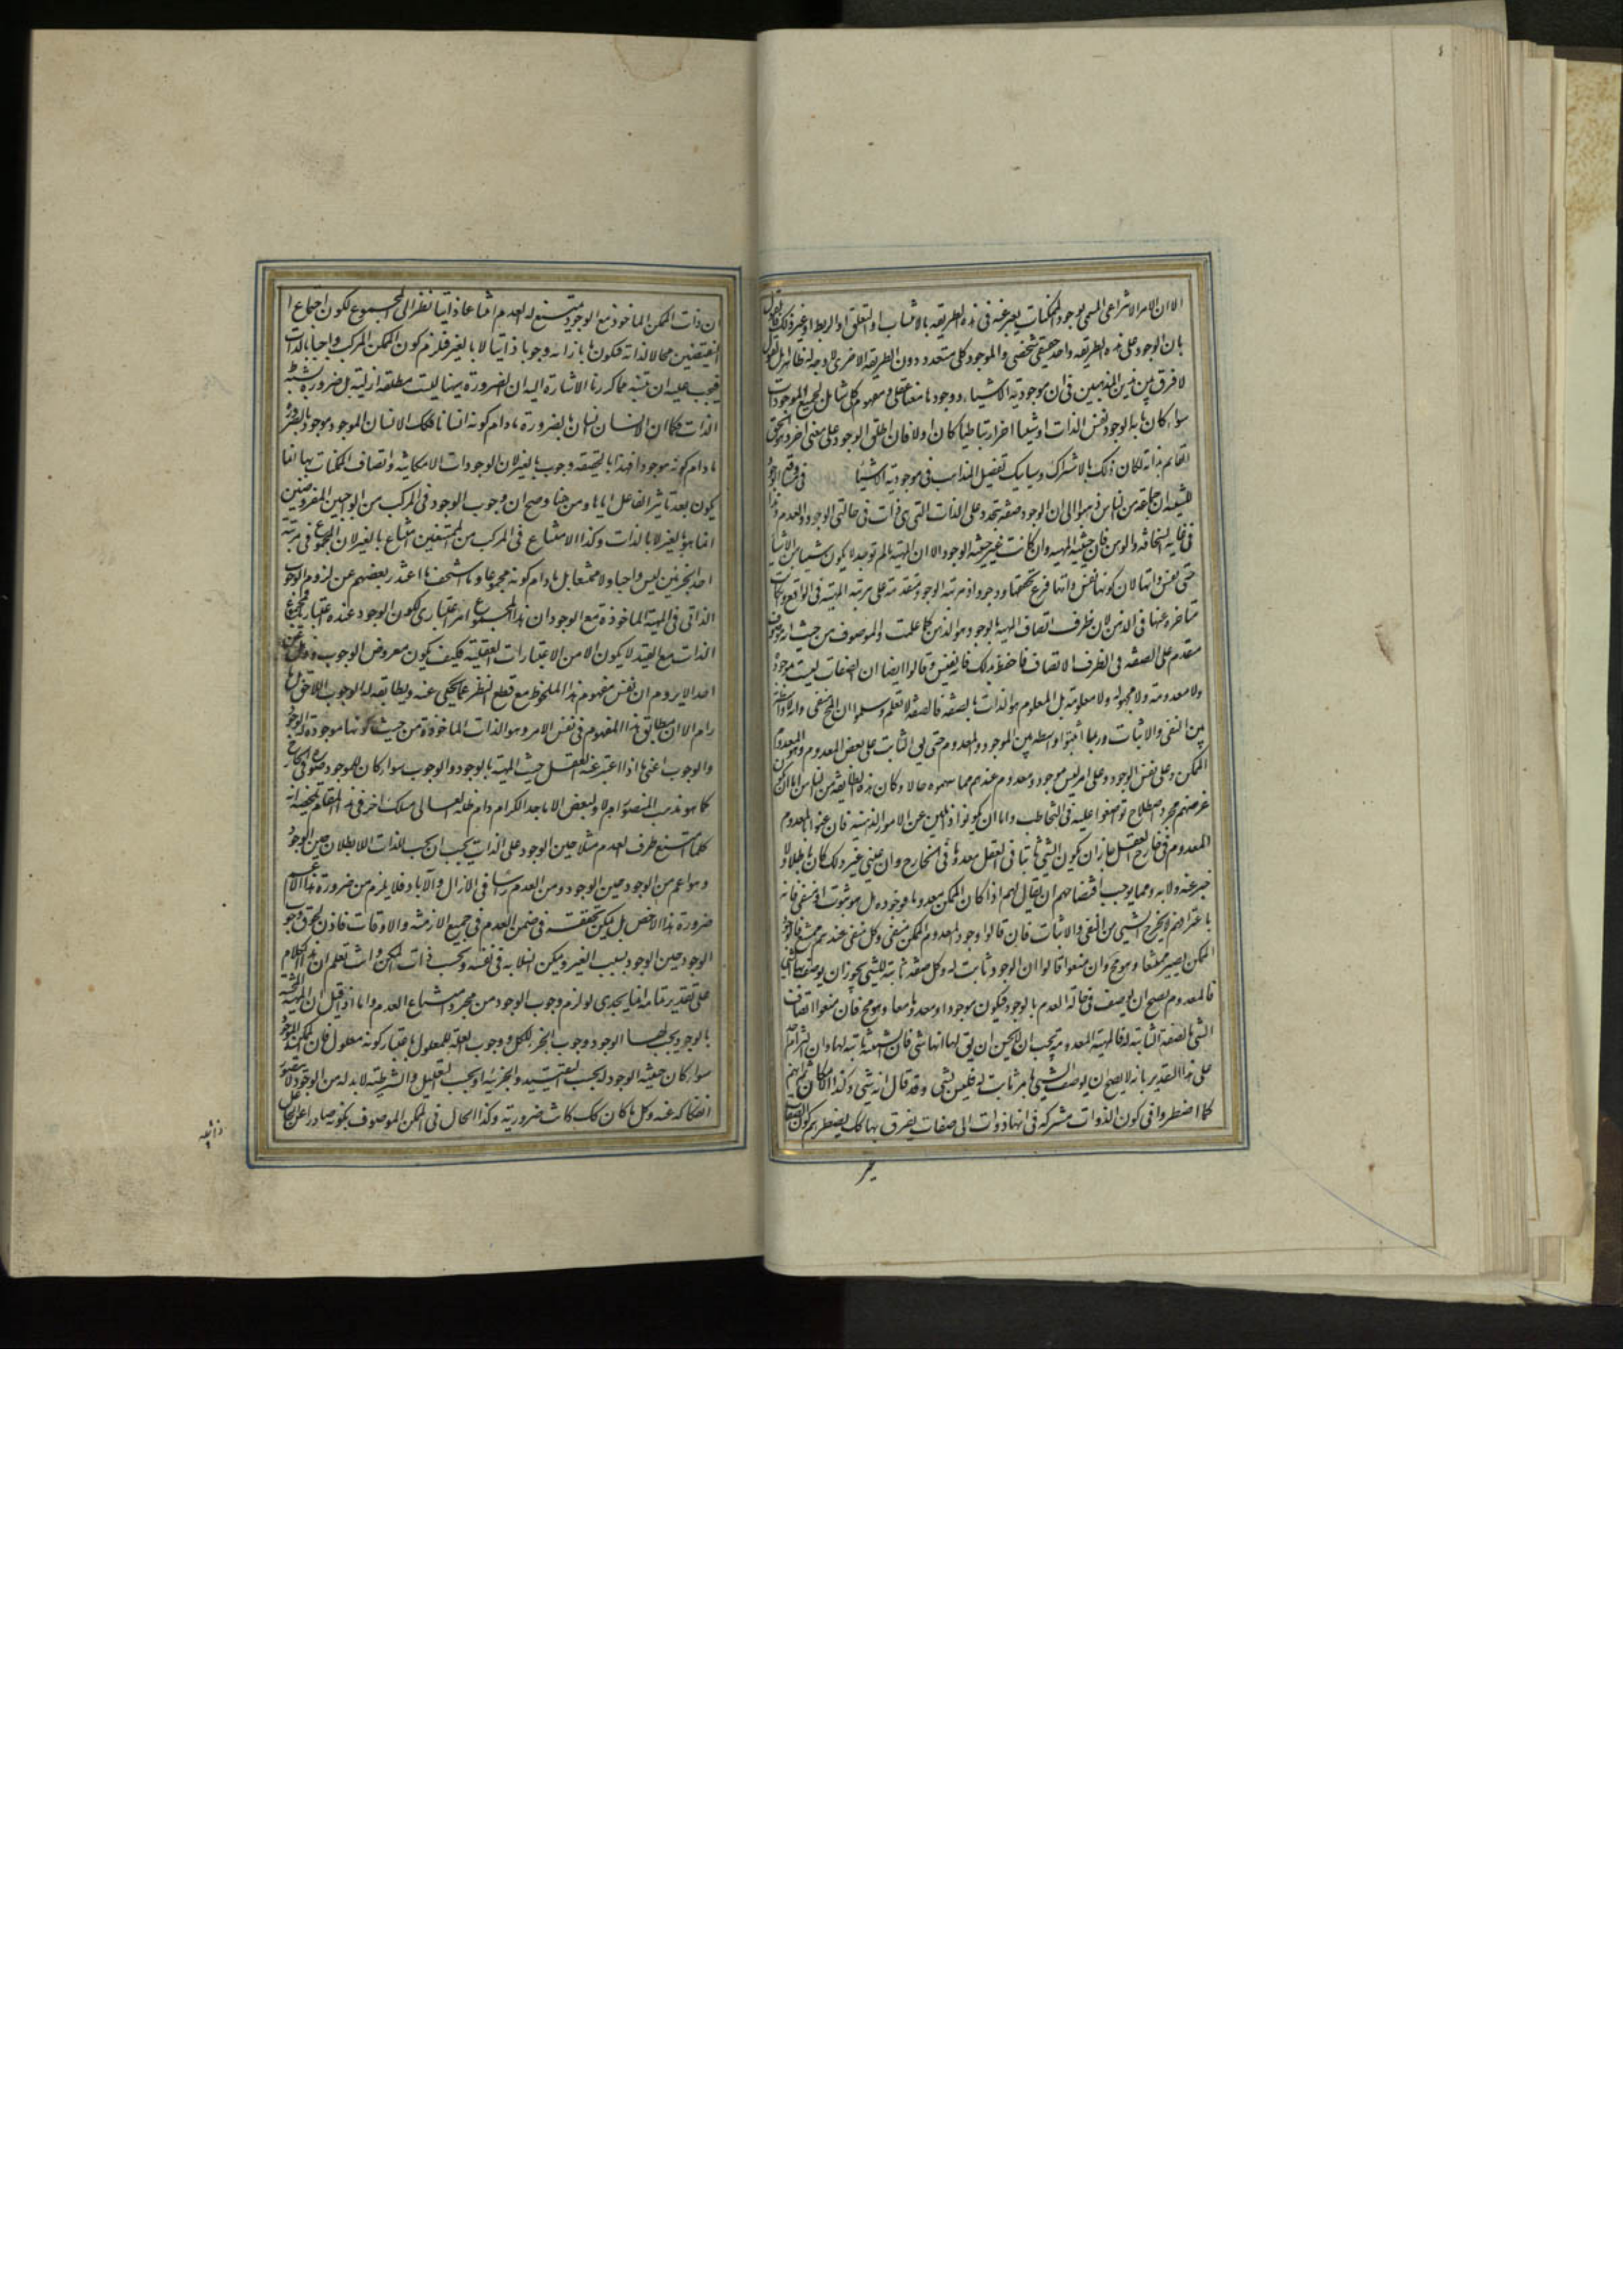 الا ان الامر الانتزاعي المسمى بوجود الممكنات يعبر عنه في هذه الطريقه بالانتساب او التعلق او الربط او غير ذلك فالقول
بان الوجود على هذه الطريقه واحد حقيقي شخصي والموجود كلي متعدد دون الطريقه الاخرى لا وجه له ظاهرا بل نقول
لا فرق بين هذين المذهبين في ان موجودية الاشياء ووجودها معنى عقلي ومفهوم كلي شامل لجميع الموجودات
سواء كان ما به الوجود نفس الذات او شيئا اخر ارتباطيا كان او لا فان اطلق الوجود على معنى اخر وهو الحق
القائم بذاته لكان ذلك بالاشتراك وسيأتيك تفصيل المذاهب في موجودية الاشياء
للشيعه ان جماعة من الناس ذهبوا الى ان الوجود صفة يتجدد على الذات التي هي ذات في حالتي الوجود والعدم وهذا
في غاية السخافة والوهن فان حيثية المهية وان كانت غير حيثية الوجود الا ان المهية ما لم توجد لا يكون شيئا من الاشياء
حتى نفس ذاتها لان كونها نفس ذاتها فرع تحققها ووجودها اذ مرتبة الوجود متقدمة على مرتبة المهية في الواقع وان كانت
متأخرة عنها في الذهن لان ظرف اتصاف المهية بالوجود هو الذهن كما علمت والموصوف من حيث انه موصوف
مقدم على الصفة في الظرف الاتصاف فاحفظ بذلك فانه نفيس وقالوا ايضا ان الصفات ليست موجودة
ولا معدومة ولا مجهولة ولا معلومة بل المعلوم هو الذات بالصفة فالصفة لا تعلم وسلموا ان المحال منفي وانه لا واسطة
بين النفي والاثبات وربما اثبتوا واسطة بين الموجود والمعدوم حتى يق الثابت على بعض المعدوم وهو المعدوم
الممكن وعلى نفس الوجود وعلى امر ليس بموجود ومعدوم عندهم مما سموه حالا وكان هذه الطايفة من الناس اما ان يكون
غرضهم مجرد اصطلاح تواضعوا عليه في التخاطب واما ان يكونوا ذاهلين عن الامور الذهنية فان عنوا بالمعدوم
المعدوم في خارج العقل جاز ان يكون الشيء ثابتا في العقل معدوما في الخارج وان عني غير ذلك كان باطلا ولا
خبر عنه ولا به ومما يوجب افتضاحهم ان يقال لهم اذا كان الممكن معدوما فوجوده هل هو ثابت او منفي فانه
باعترافهم لا يخرج الشيء من النفي والاثبات فان قالوا وجود المعدوم الممكن منفي وكل منفي عندهم ممتنع فالوجود
الممكن يصير ممتنعا وهو مح وان منعوا قالوا ان الوجود ثابت له وكل صفة ثابتة للشيء يجوز ان يوصف بها الشيء
فالمعدوم يصح ان يوصف في حالة العدم بالوجود فيكون موجودا ومعدوما معا وهو مح فان منعوا اتصاف
الشيء بالصفة الثابتة له فالمهية المعدومة يجب ان لا يصح ان يق لها انها شيء فان الشيئية ثابتة لها وان التزم احد
على هذا التقدير بانه لا يصح ان يوصف الشيء بامر ثابت له فليس بشيء وقد قال انه شيء وكذا الامكان ثم انهم
كما اضطروا في كون الذوات مشتركة في انها ذوات الى صفات يفترق بها كك يضطرهم كون الصفات
ان ذات الممكن الماخوذ مع الوجود يمتنع له العدم امتناعا ذاتيا نظرا الى المجموع لكون اجتماع ا
النقيضين محالا لذاته فيكون ما بازائه وجوبا ذاتيا لا بالغير فلزم كون الممكن المركب واجبا بالذات
فيجب عليه ان يتنبه مما كررنا الاشارة اليه ان الضرورة هيهنا ليست مطلقة ازلية بل ضرورة بشرط
الذات فكما ان الانسان انسان بالضرورة ما دام كونه انسانا فكك الانسان الموجود موجود بالضرورة
ما دام كونه موجودا فهذا بالحقيقة وجوب بالغير لان الوجودات الامكانية واتصاف الممكنات بها انما
يكون بعد تاثير الفاعل اياها ومن هنا وضح ان وجوب الوجود في المركب من الواجبين المفروضين
انما هو بالغير لا بالذات وكذا الامتناع في المركب من الممتنعين امتناع بالغير لان المجموع في مرتبة
احد الجزئين ليس واجبا ولا ممتنعا بل ما دام كونه مجموعا وما اسخف ما اعتذر بعضهم عن لزوم الوجوب
الذاتي في المهية الماخوذة مع الوجود ان هذا المجموع امر اعتباري لكون الوجود عنده اعتباريا ومجموع
الذات مع القيد لا يكون الا من الاعتبارات العقلية فكيف يكون معروض الوجوب
احد الا يروم ان نفس مفهوم هذا الملحوظ مع قطع النظر عما يحكي عنه ويطابقه له الوجوب اللاحق بل ما
رام الا ان مطابق هذا المفهوم في نفس الامر وهو الذات الماخوذة من حيث كونها موجودة له الوجود
والوجوب اعني ما اذا اعتبر عنه العقل حيث المهية بالوجود والوجوب سواء كان للوجود صورة في الخارج
كما هو مذهب المنصور ام لا ولبعض الاماجد الكرام دام ظله العالي مسلك اخر في هذا المقام تلخيصه انه
كلما امتنع ظرف العدم مثلا حين الوجود على الذات يجب ان يجب للذات اللابطلان حين الوجود
وهو اعم من الوجود حين الوجود ومن العدم راسا في الازال والاباد فلا يلزم من ضرورة هذا الاعم
ضرورة هذا الاخص بل يمكن تحققه في ضمن العدم في جميع الازمنة والاوقات فاذن لحوق وجوب
الوجود حين الوجود بسبب الغير ويمكن انسلابه في نفسه وبحسب ذات الممكن وانت تعلم ان هذا الكلام
على تقدير تمامه انما يجدي لو لزم وجوب الوجود من مجرد امتناع العدم واما اذا قيل ان المهية الملحوظة
بالوجود يجب لها الوجود وجوب الجزء للكل ووجوب العلة للمعلول باعتبار كونه معلول فان الممكن الموجود
سواء كان حيثية الوجود له بحسب التقييد والجزئية او بحسب التعليل والشرطية لا بد له من الوجود لا يتصور
انفكاكه عنه وكل ما كان كك كانت ضرورية وكذا الحال في الممكن الموصوف بكونه صادرا عن الجاعل